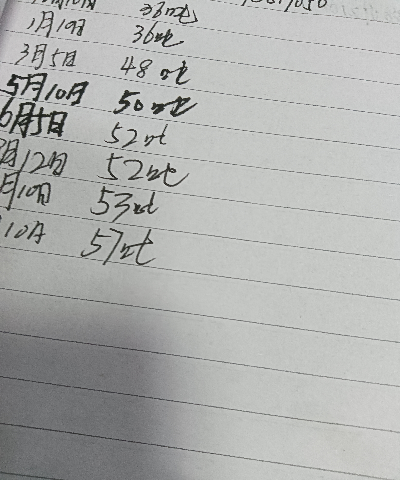 36吨
1月19日 36吨
3月5日 48吨
5月10日 50吨
6月5日 52吨
月12日 52吨
月10日 53吨
10日 57吨